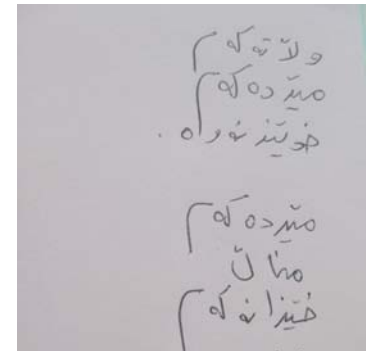 وڵاتەکەم
مێردەکەم
خوێندنەوە.
مێردەکەم
مناڵ
خێزانەکەم